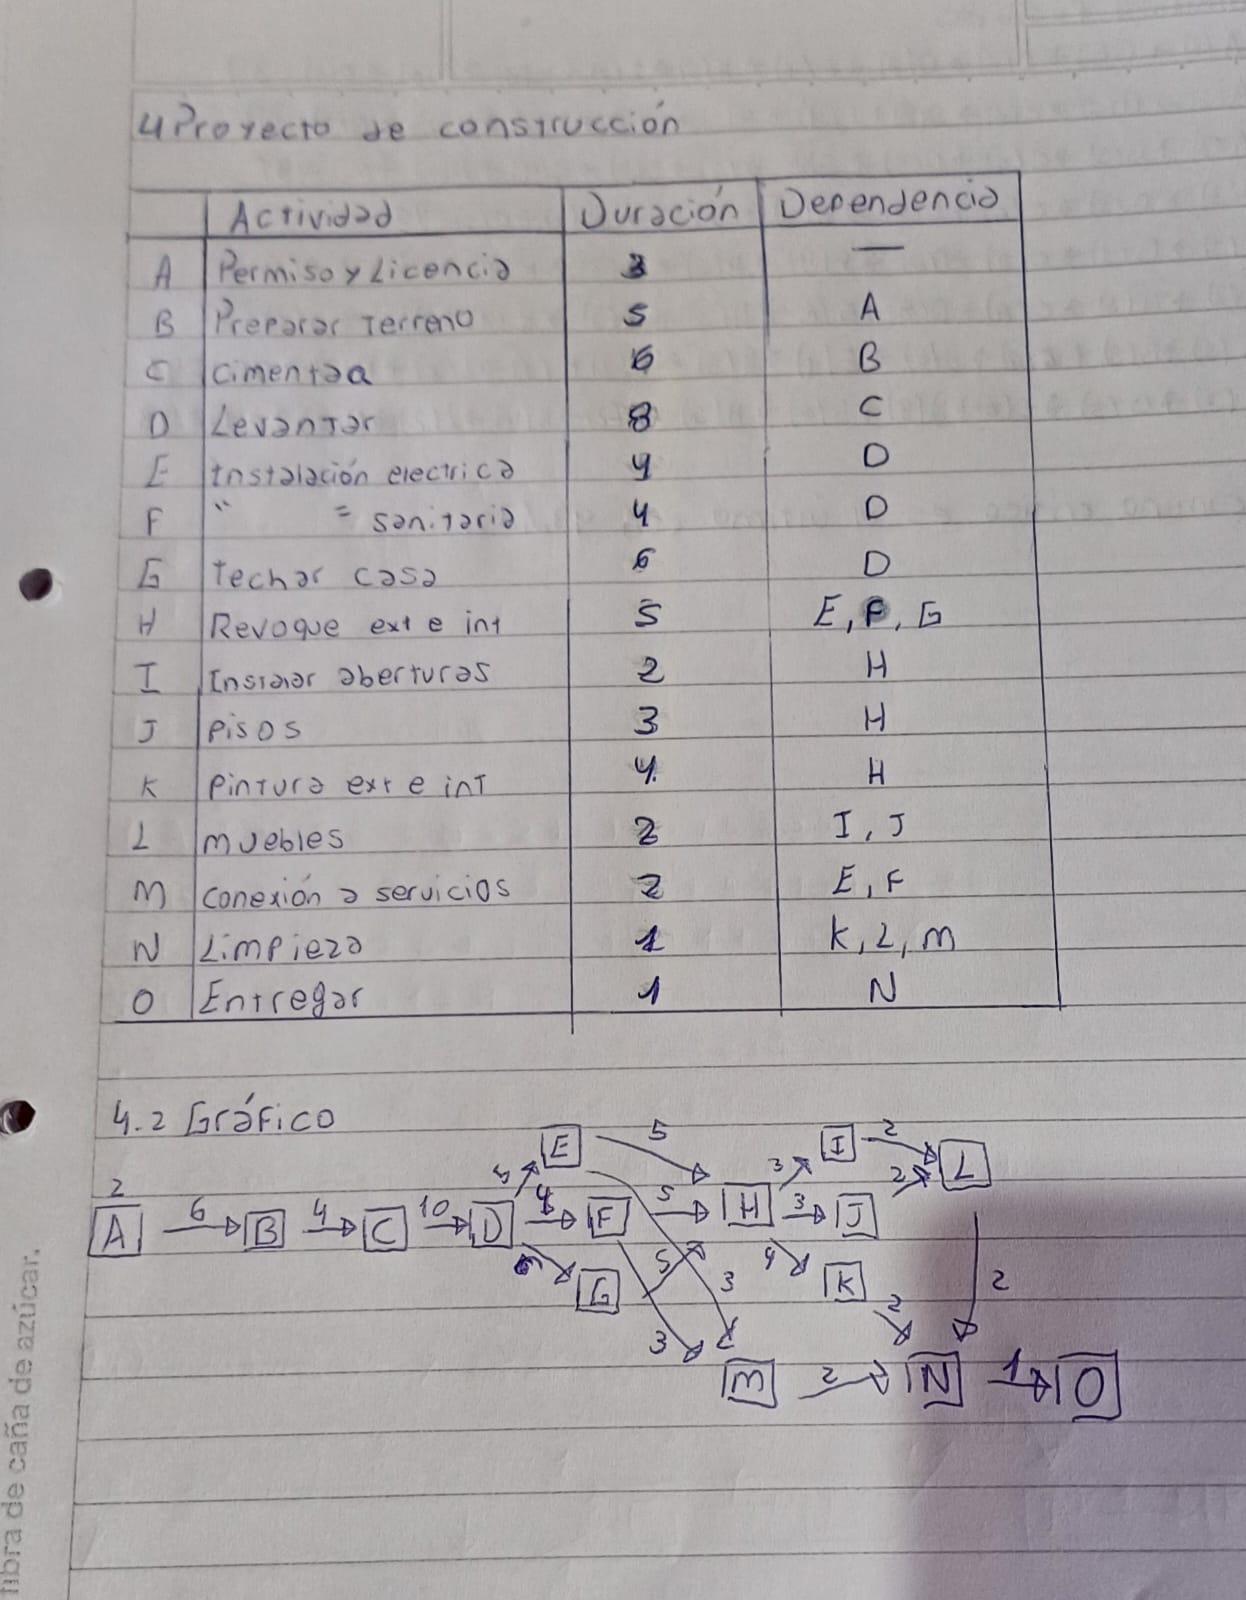 4 Proyecto de construcción
Actividad Duración Dependencia
A Permiso y Licencia 3 —
B Preparar Terreno 5 A
C cimentaa 6 B
D Levantar 8 C
E Instalación electrica 4 D
F " = sanitaria 4 D
G Techar casa 6 D
H Revoque ext e int 5 E, F, G
I Instalar aberturas 2 H
J Pisos 3 H
K Pintura ext e int 4 H
L muebles 2 I, J
M conexión a servicios 2 E, F
N Limpieza 1 K, L, M
O Entregar 1 N
4.2 Gráfico
E 5 I 2 L
2 3 2
A 6 B 4 C 10 D 4 F 5 H 3 J
6 G 5 3 4 K 2 2
3 M 2 N 1 O
fibra de caña de azúcar.